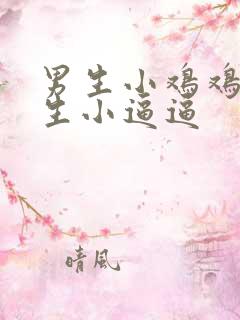 男生小鸡鸡
生小逼逼
晴风